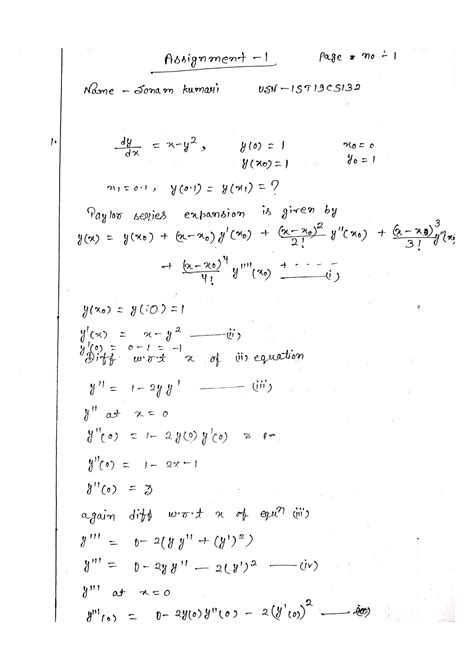 Assignment - 1
Page no :- 1
Name - Sonam Kumari USN - 1ST19CS132
1.
dy/dx = x-y², y(0) = 1 x₀ = 0
y(x₀) = 1 y₀ = 1
x₁ = 0.1, y(0.1) = y(x₁) = ?
Taylor series expansion is given by
y(x) = y(x₀) + (x-x₀) y'(x₀) + (x-x₀)²/2! y''(x₀) + (x-x₀)³/3! y'''(x₀)
+ (x-x₀)⁴/4! y''''(x₀) + ----- (i)
y(x₀) = y(0) = 1
y'(x) = x - y² —— (ii)
y'(0) = 0 - 1 = -1
Diff w.r.t x of (ii) equation
y'' = 1 - 2y y' —— (iii)
y'' at x = 0
y''(0) = 1 - 2y(0) y'(0)
y''(0) = 1 - 2x-1
y''(0) = 3
again diff w.r.t x of equⁿ (iii)
y''' = 0 - 2(y y'' + (y')²)
y''' = 0 - 2y y'' - 2(y')² —— (iv)
y''' at x = 0
y'''(0) = 0 - 2y(0) y''(0) - 2(y'(0))² ——